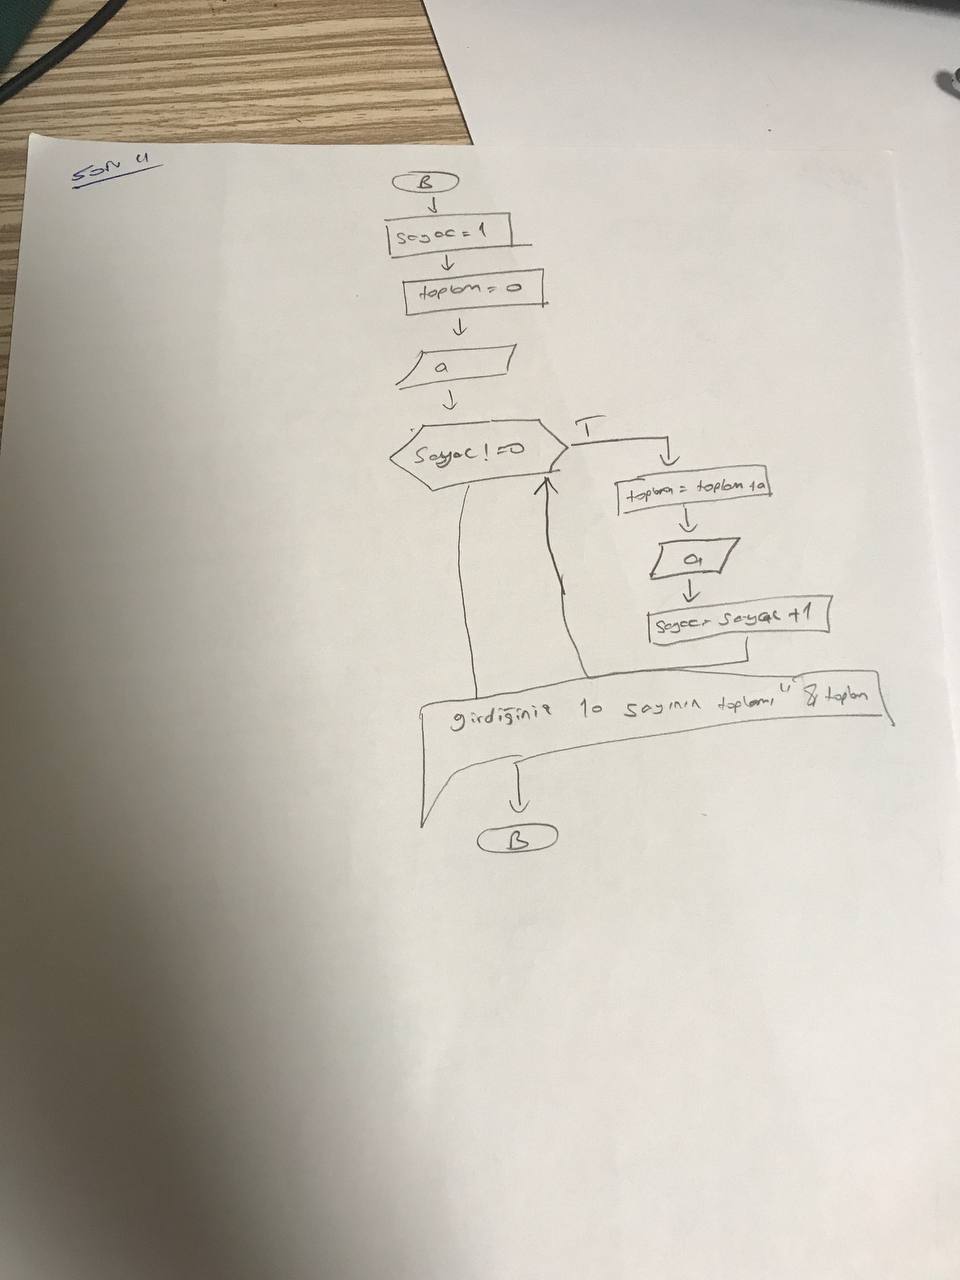 SON 4
B
sayac = 1
toplam = 0
a
Sayac != 0
T
toplam = toplam + a
a
sayac = sayac + 1
girdiğiniz 10 sayının toplamı " & toplam
B